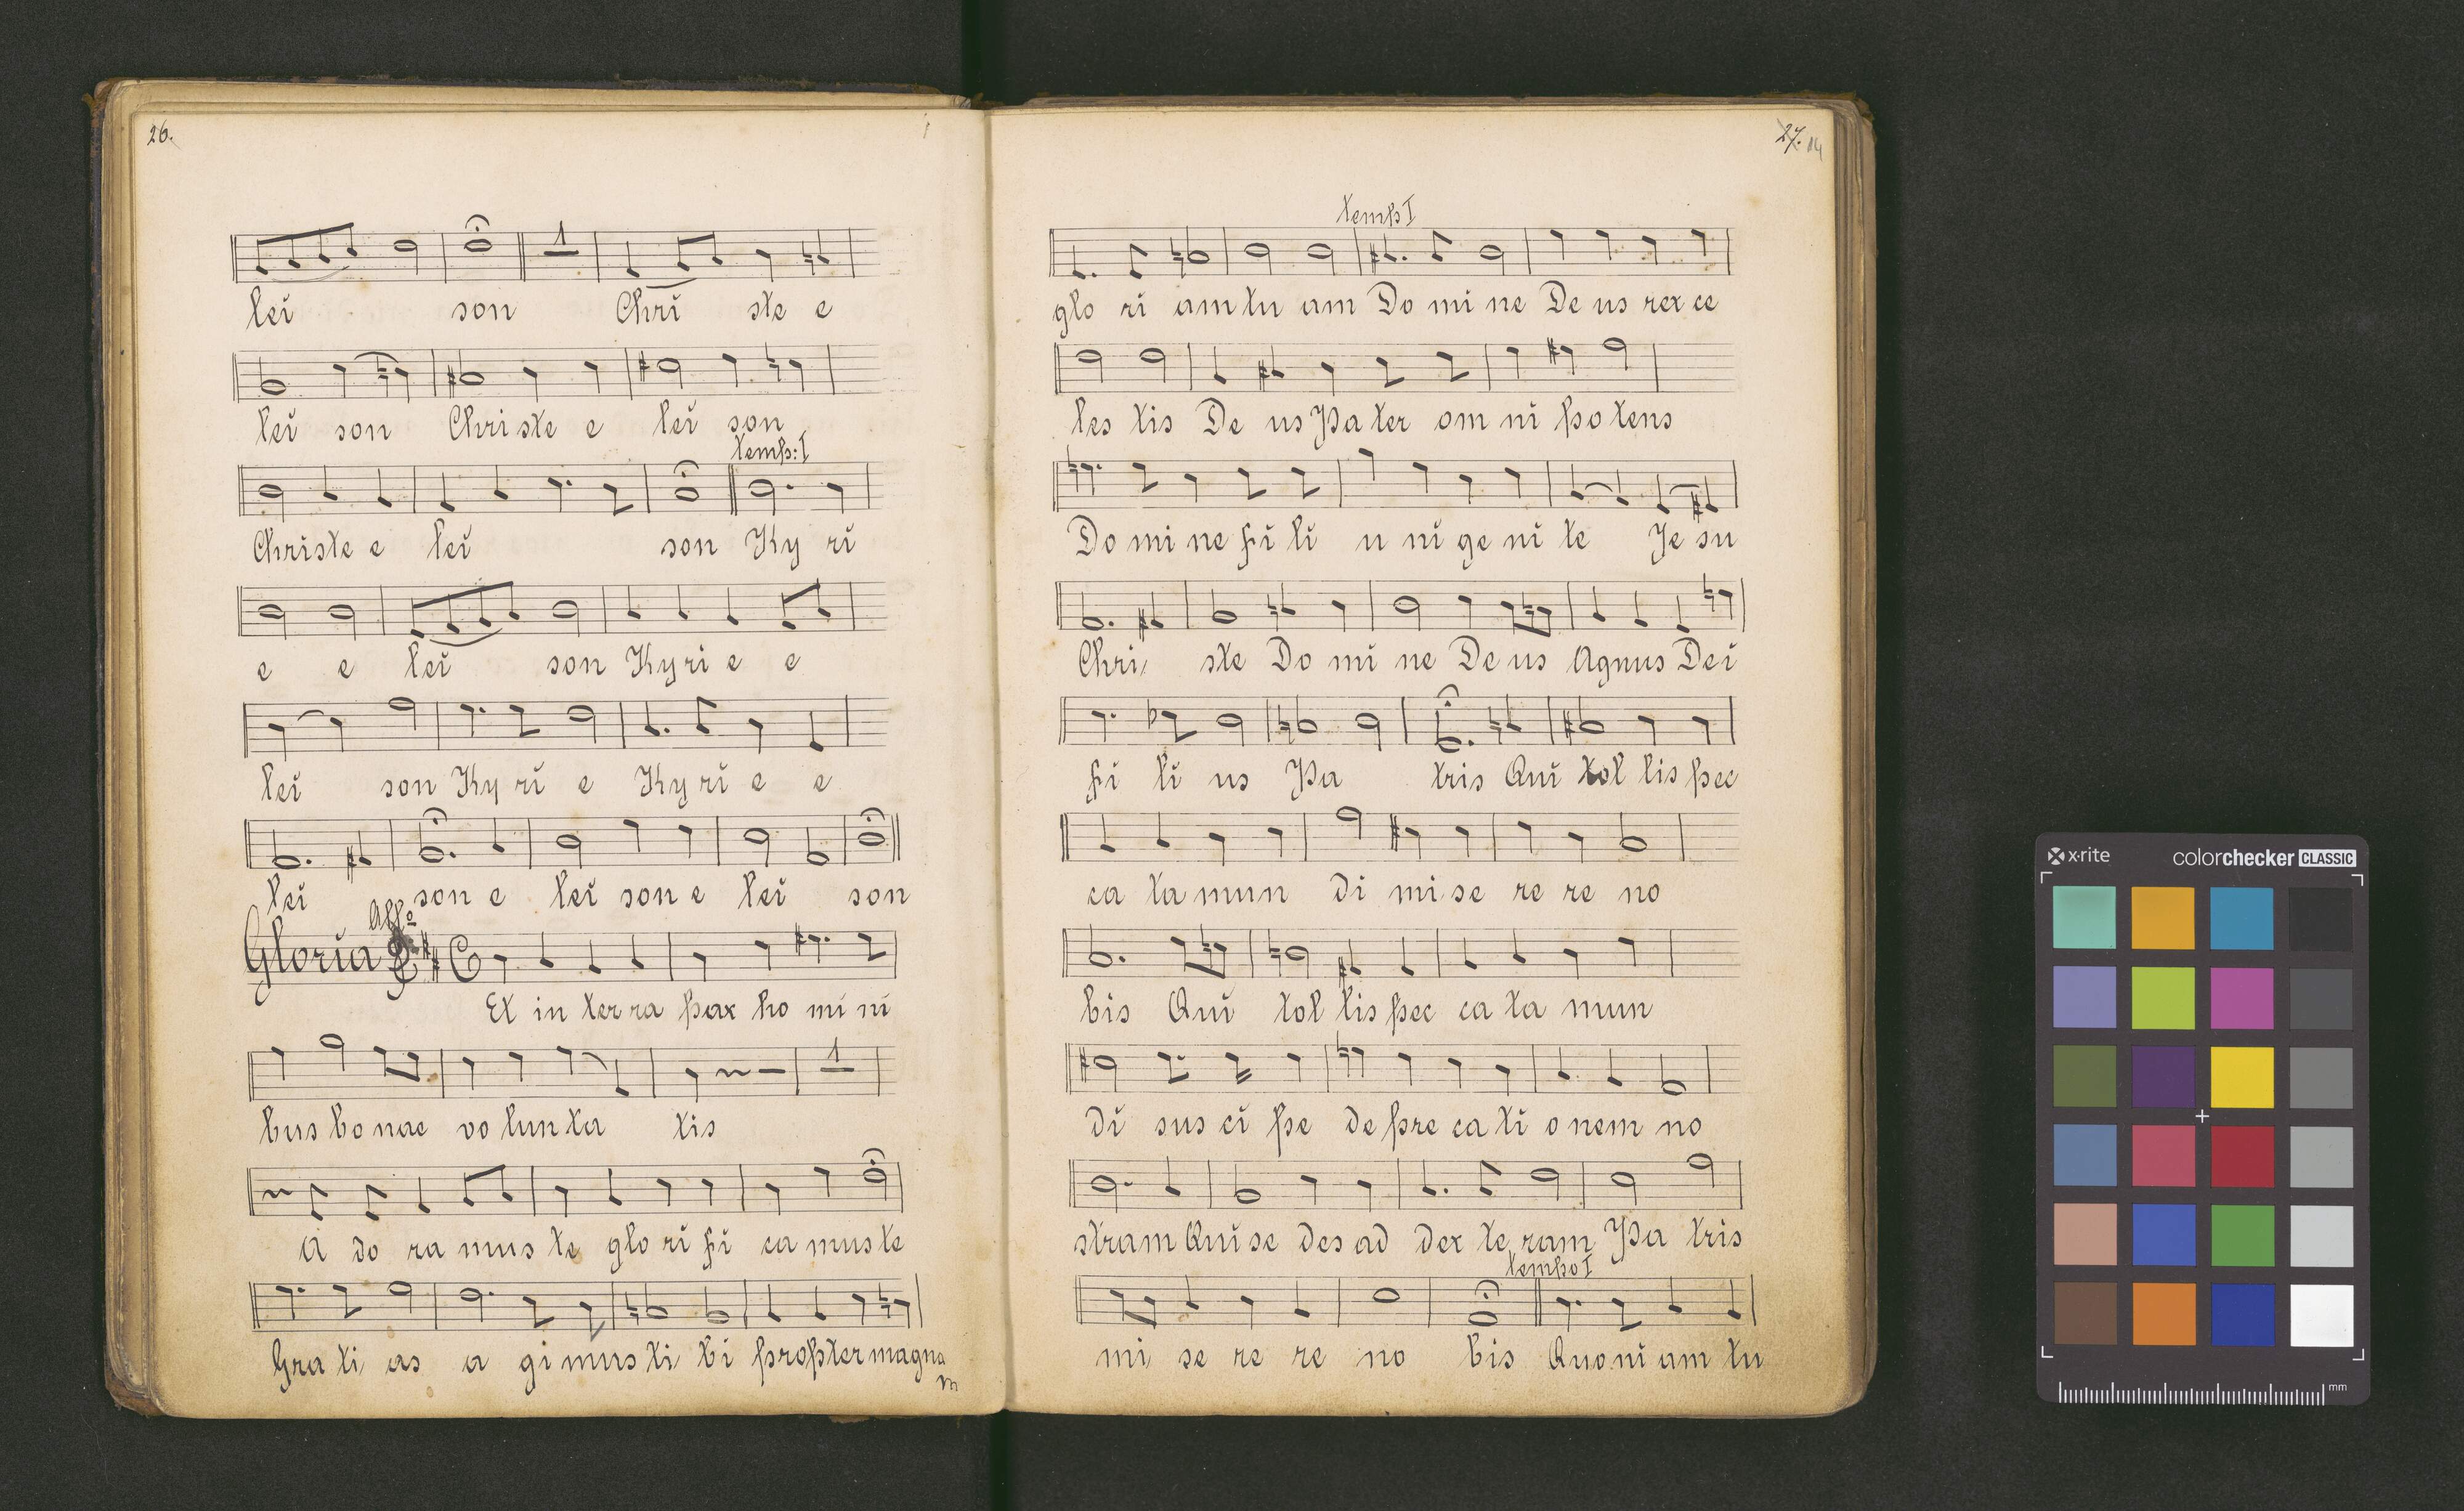 26.
1
lei son Chri ste e
lei son Christe e lei son
temp: I
Christe e lei son Ky ri
e e lei son Kyri e e
lei son Ky ri e Ky ri e e
lei son e lei son e lei son
Allo
Gloria C
Et in ter ra pax ho mi ni
1
bus bo nae vo lun ta tis
A do ra mus te glo ri fi ca mus te
Gra ti as a gi mus ti bi propter magna
m
27. 14
temp I
glo ri am tu am Do mi ne De us rex ce
les tis De us Pa ter om ni po tens
Do mi ne fi li u ni ge ni te Je su
Chri ste Do mi ne De us Agnus Dei
fi li us Pa tris Qui tol lis pec
ca ta mun di mi se re re no
bis Qui tol lis pec ca ta mun
di sus ci pe de pre ca ti o nem no
stram Qui se des ad dex te ram Pa tris
tempo I
mi se re re no bis Quo ni am tu
x·rite colorchecker CLASSIC
mm